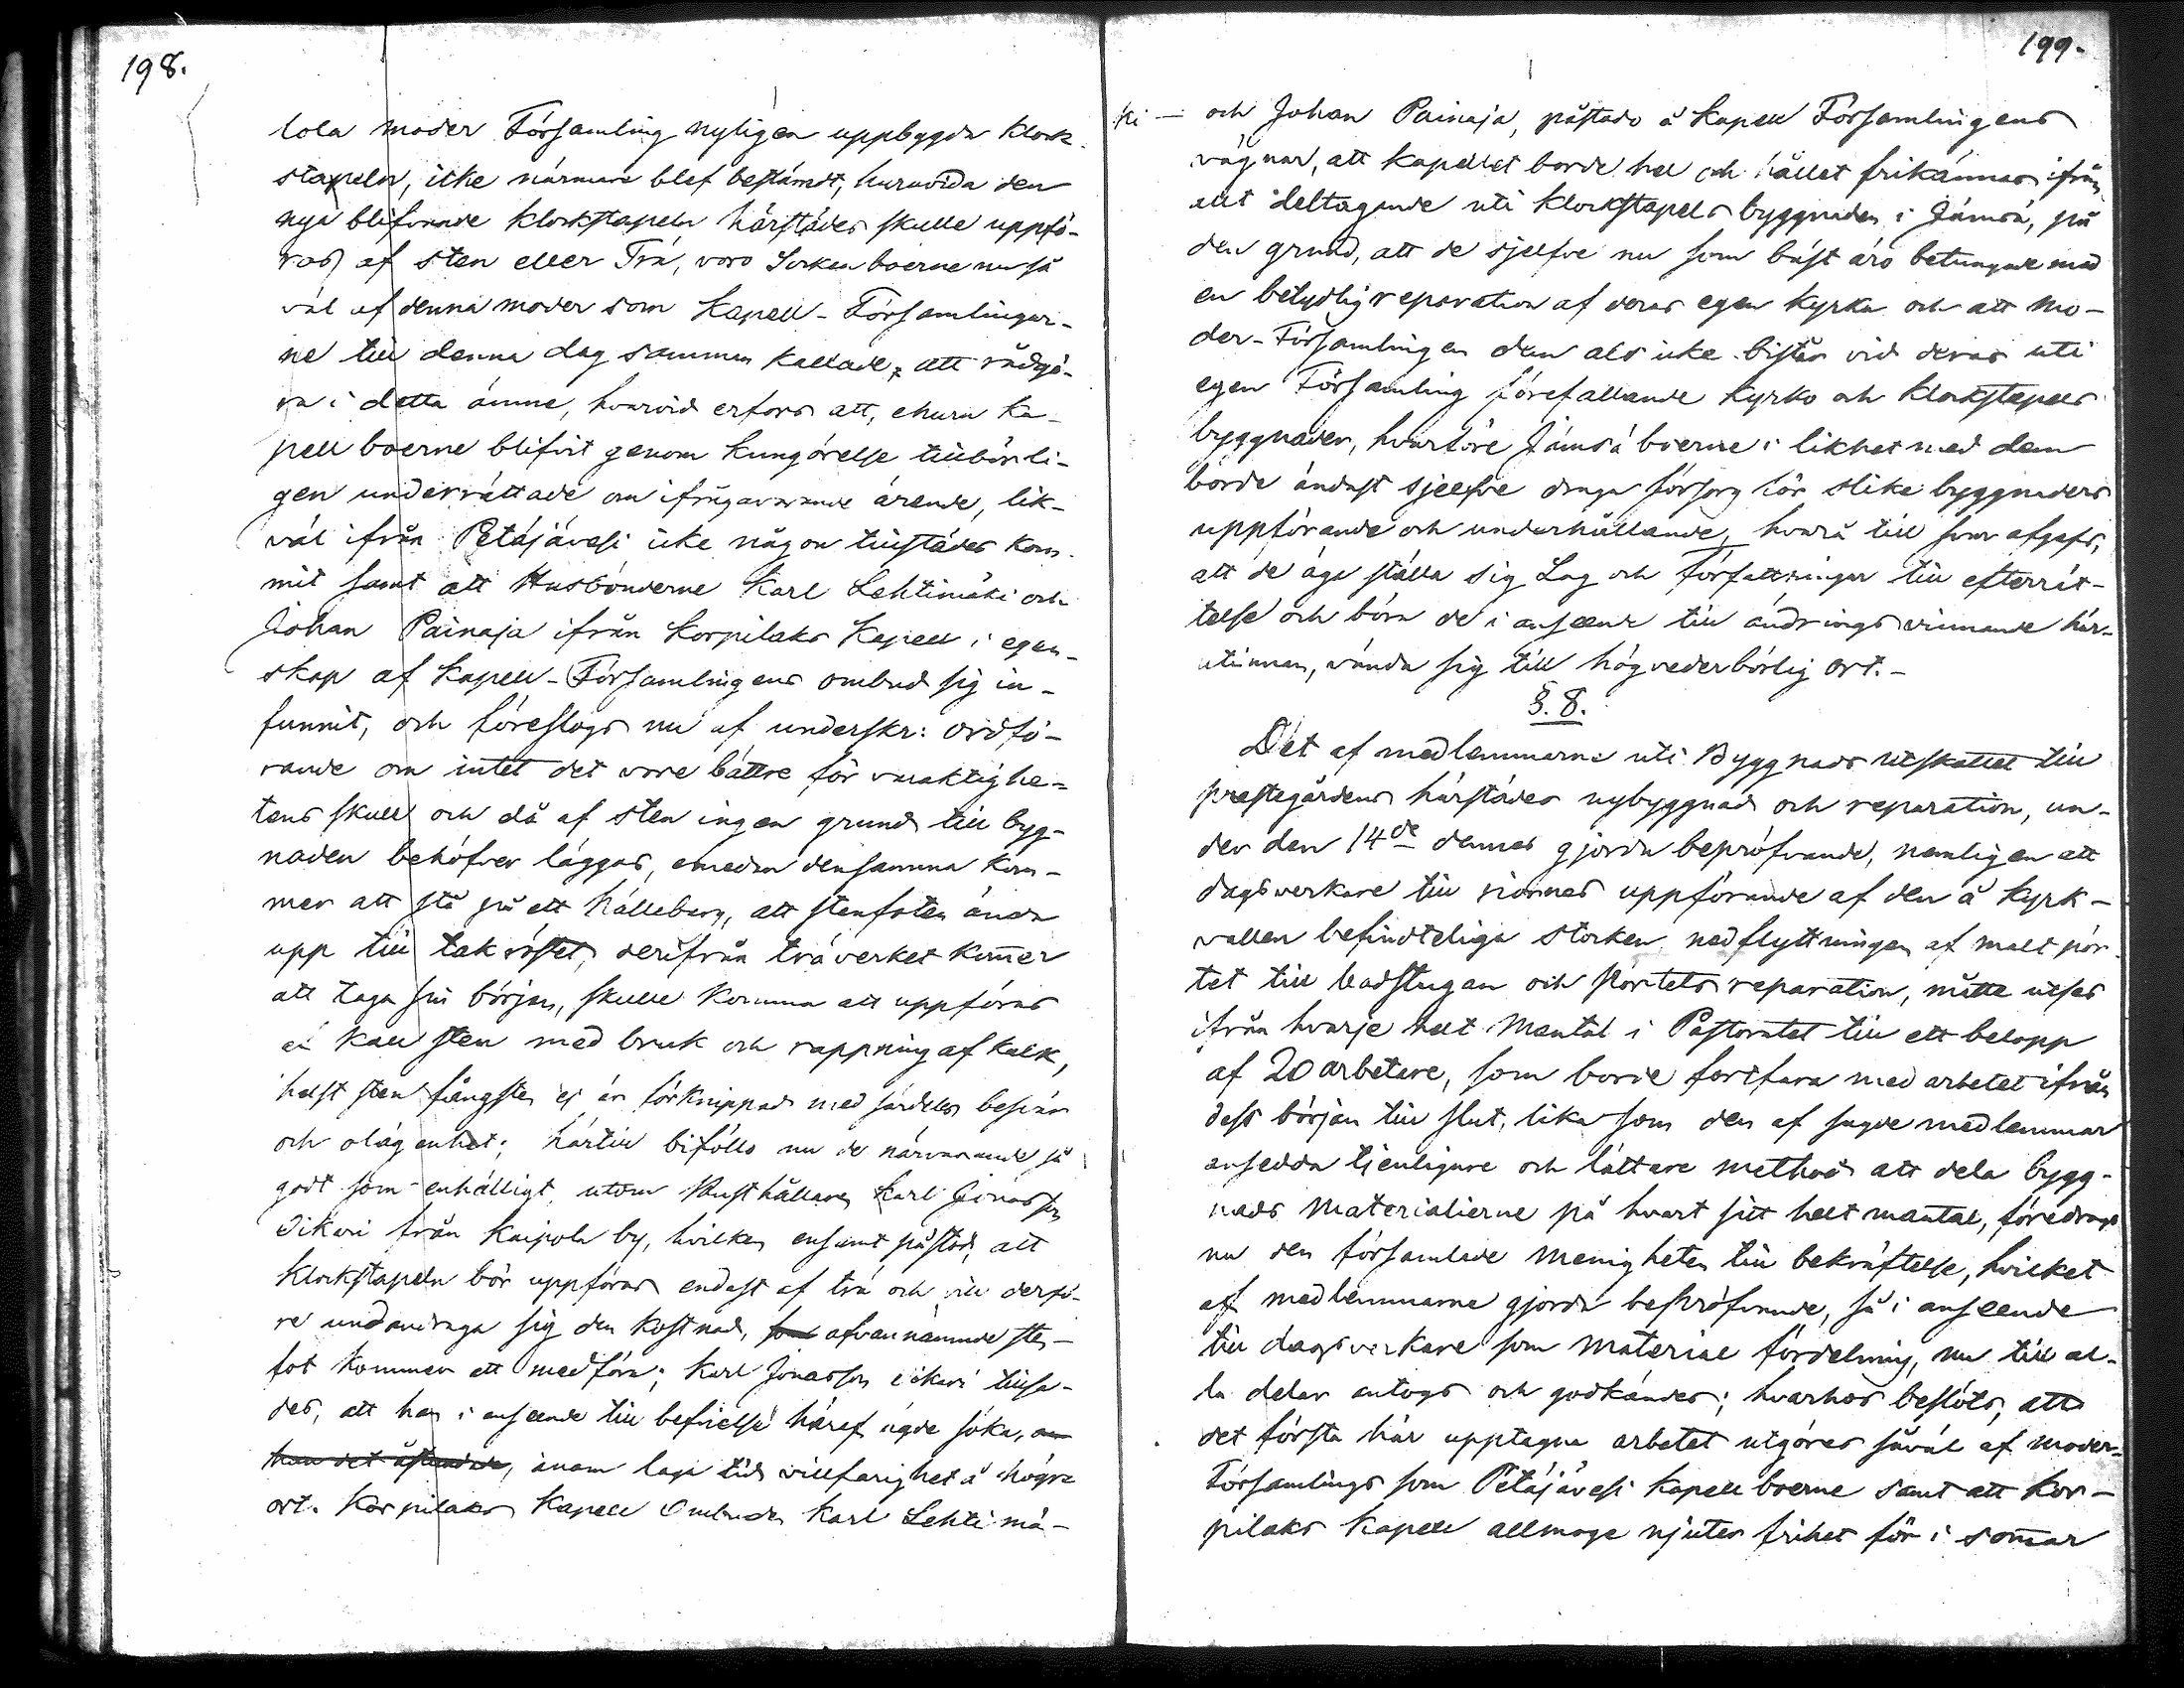 198.
lola moder Församling nyligen uppbygda klock-
stapeln, icke närmare blef bestämdt, huruvida den
nya blifvande klockstapeln härstädes skulle uppfö-
ras af sten eller Trä, voro Sockneboerne nu så
väl af denna moder som Kapell-Församlingar-
ne till denna dag samman kallade, att rådgö-
ra i detta ämne, hvarvid erfors att, ehuru Ka-
pellboerne blifvit genom Kungörelse tillbörli-
gen underrättade om ifrågavarande ärende, lik-
väl ifrån Petäjävesi icke någon tillstädes kom-
mit samt att Husbönderne Karl Lehtimäki och
Johan Painaja ifrån Korpilaks Kapell i egen-
skap af Kapell-Församlingens ombud sig in-
funnit, och föreslogs nu af underskr: ordfö-
rande om intet det vore bättre för varaktighe-
tens skull och då af sten ingen grund till byg-
naden behöfver läggas, emedan densamma kom-
mer att stå på ett hälleberg, att stenfoten ända
upp till takröstet, derifrån träverket kommer
att taga sin början, skulle komma att uppföras
å kall sten med bruk och rappning af kalk,
helst sten fångsten ej är förknippad med särdeles besvär
och olägenhet; härtill biföllo nu de närvarande så
godt som enhälligt, utom Rusthållaren Karl Jonasson
Eikari från Kaipola by, hvilken ensamt påstod, att
Klockstapeln bör uppföras endast af trä och vill derfö-
re undandraga sig den kostnad, som ofvannämnde sten-
fot kommer att medföra; Karl Jonasson Eikari tillsa-
des, att han i anseende till befrielse häraf ägde söka, om
han det åstundade, inom laga tid villfarighet å högre
ort. Korpilaks Kapell Ombuden Karl Lehtimä-
199.
ki – och Johan Painaja, påstado å Kapell Församlingens
vägnar, att kapellet borde hel och hållet frikännas ifrån
allt deltagande uti klockstapels byggnaden i Jämsä, på
den grund, att de sjelfve nu som bäst äro betungade med
en betydlig reparation af deras egen kyrka och att Mo-
der-Församlingen dem als icke bistår vid deras uti
egen Församling förefallande kyrko och klockstapels
byggnader, hvarföre Jämsä boerne i likhet med dem
borde ändast sjelfve draga försorg för slike byggnaders
uppförande och underhållande, hvarå till svar afgafs,
att de äga ställa sig Lag och författningar till efterrät-
telse och böra de i anseende till ändrings vinnande här-
utinnan, vända sig till högvederbörlig ort. –
§. 8.
Det af medlemmarne uti Byggnads utskottet till
prestegårdens härstädes nybyggnad och reparation, un-
der den 14de dennes gjorda bepröfvande, nemligen att
dagsverkare till riornas uppförande af den å kyrk-
vallen befindteliga stocken, nedflyttningen af malt pör-
tet till badstugan och Pörtets reparation, måtte utses
ifrån hvarje helt Mantal i Pastoratet till ett belopp
af 20 arbetare, som borde fortfara med arbetet ifrån
dess början till slut, lika som den af sagde medlemmar
ansedda tjenligare och lättare method att dela bygg-
nads Materialierne på hvart sitt helt mantal, föredrogs
nu den församlade menigheten till bekräftelse, hvilket
af medlemmarne gjorda bepröfvande, så i anseende
till dagsverkare som material fördelning, nu till al-
la delar antogs och godkändes; hvarhos beslöts, att
det första här upptagna arbetet utgöres såväl af moder-
Församlings som Petäjävesi Kapellboerne samt att Kor-
pilaks Kapell allmoge njuter frihet för i sommar